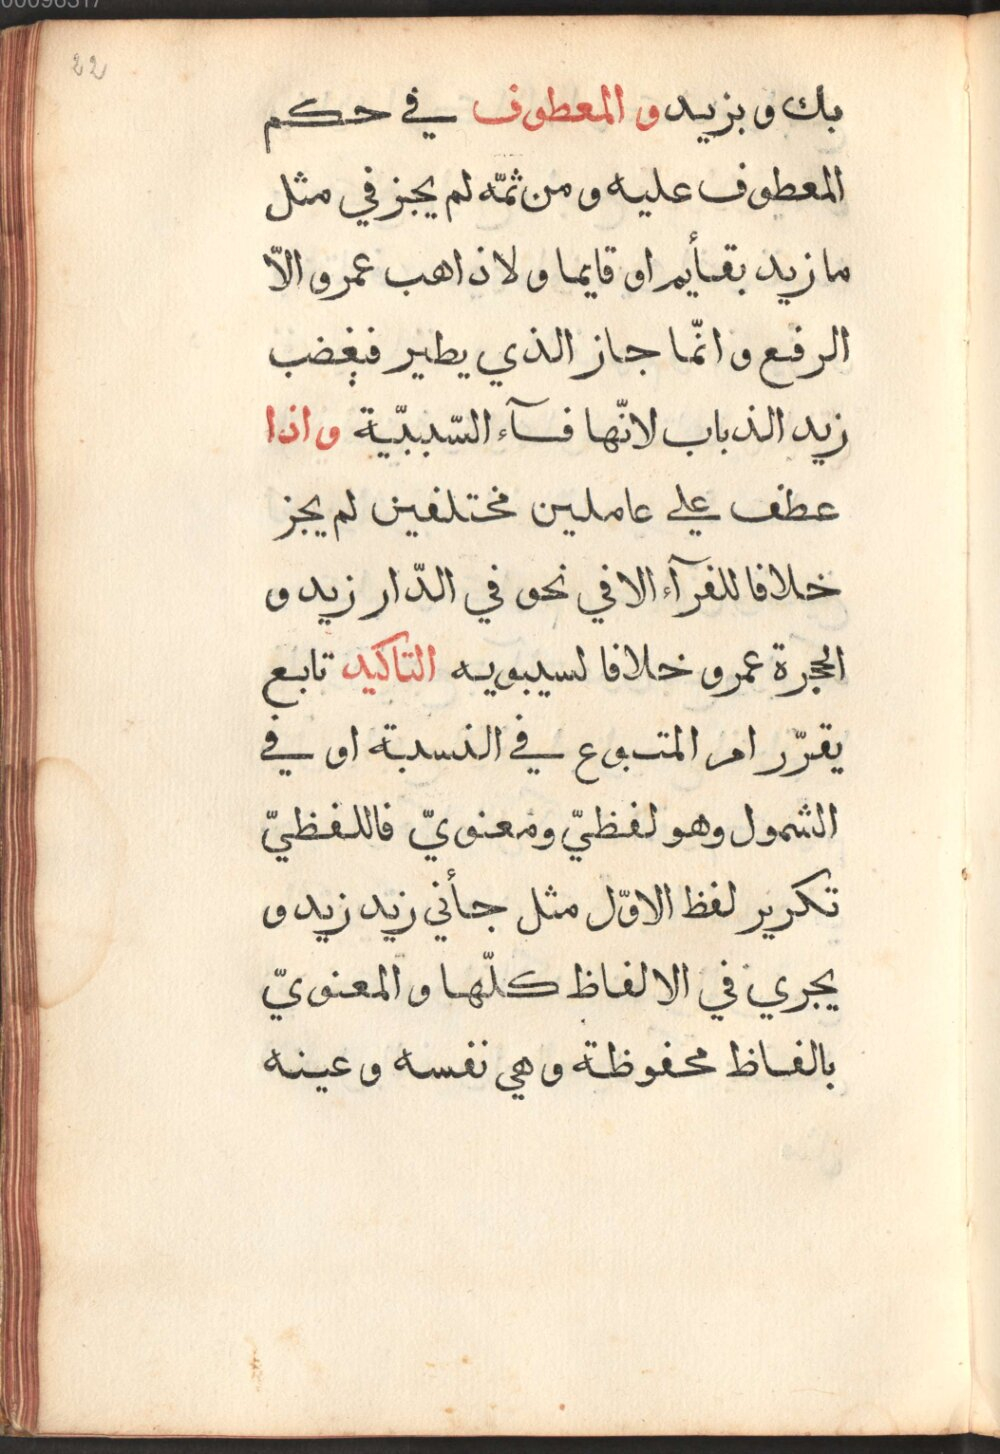 22
بك وبزيد والمعطوف في حكم
المعطوف عليه ومن ثمّه لم يجز في مثل
ما زيد بقأيم او قايما ولا ذاهب عمرو الاّ
الرفع وانّما جاز الذي يطير فيغضب
زيد الذباب لانّها فآء السّببيّة واذا
عطف علي عاملين مختلفين لم يجز
خلافا للفرآء الا في نحو في الدّار زيد و
الحجرة عمرو خلافا لسيبويه التاكيد تابع
يقرّر امر المتبوع في النسبة او في
الشمول وهو لفظيّ ومعنويّ فاللفظيّ
تكرير لفظ الاوّل مثل جأني زيد زيد و
يجري في الالفاظ كلّها والمعنويّ
بالفاظ محفوظة وهي نفسه وعينه